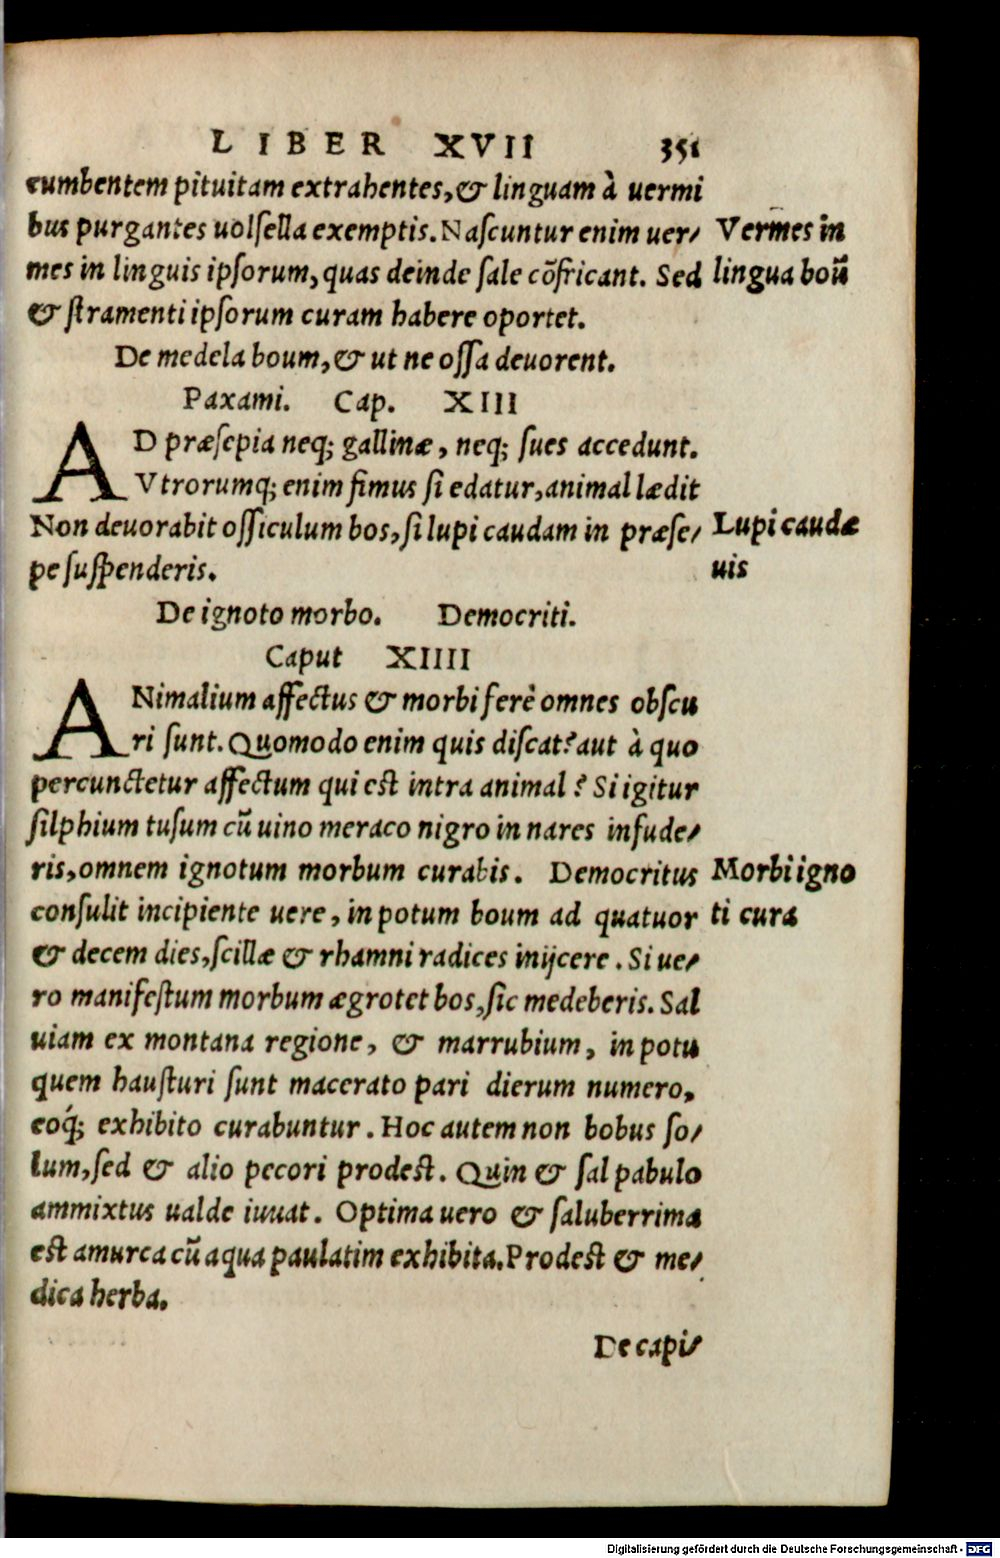 LIBER XVII 351
cumbentem pituitam extrahentes, & linguam à uermi
bus purgantes uolsella exemptis. Nascuntur enim uer/
mes in linguis ipsorum, quas deinde sale cõfricant. Sed
& stramenti ipsorum curam habere oportet.
Vermes in
lingua boũ
De medela boum, & ut ne ossa deuorent.
Paxami. Cap. XIII
AD præsepia neq; gallinæ, neq; sues accedunt.
Vtrorumq; enim fimus si edatur, animal lædit
Non deuorabit ossiculum bos, si lupi caudam in præse/
pe suspenderis.
Lupi caudæ
uis
De ignoto morbo. Democriti.
Caput XIIII
ANimalium affectus & morbi ferè omnes obscu
ri sunt. Quomodo enim quis discat? aut à quo
percunctetur affectum qui est intra animal? Si igitur
silphium tusum cũ uino meraco nigro in nares infude/
ris, omnem ignotum morbum curabis. Democritus
consulit incipiente uere, in potum boum ad quatuor
& decem dies, scillæ & rhamni radices inijcere. Si ue/
ro manifestum morbum ægrotet bos, sic medeberis. Sal
uiam ex montana regione, & marrubium, in potu
quem hausturi sunt macerato pari dierum numero,
eoq́; exhibito curabuntur. Hoc autem non bobus so/
lum, sed & alio pecori prodest. Quin & sal pabulo
ammixtus ualde iuuat. Optima uero & saluberrima
est amurca cũ aqua paulatim exhibita. Prodest & me/
dica herba.
Morbi igno
ti cura
De capi/
Digitalisierung gefördert durch die Deutsche Forschungsgemeinschaft - DFG